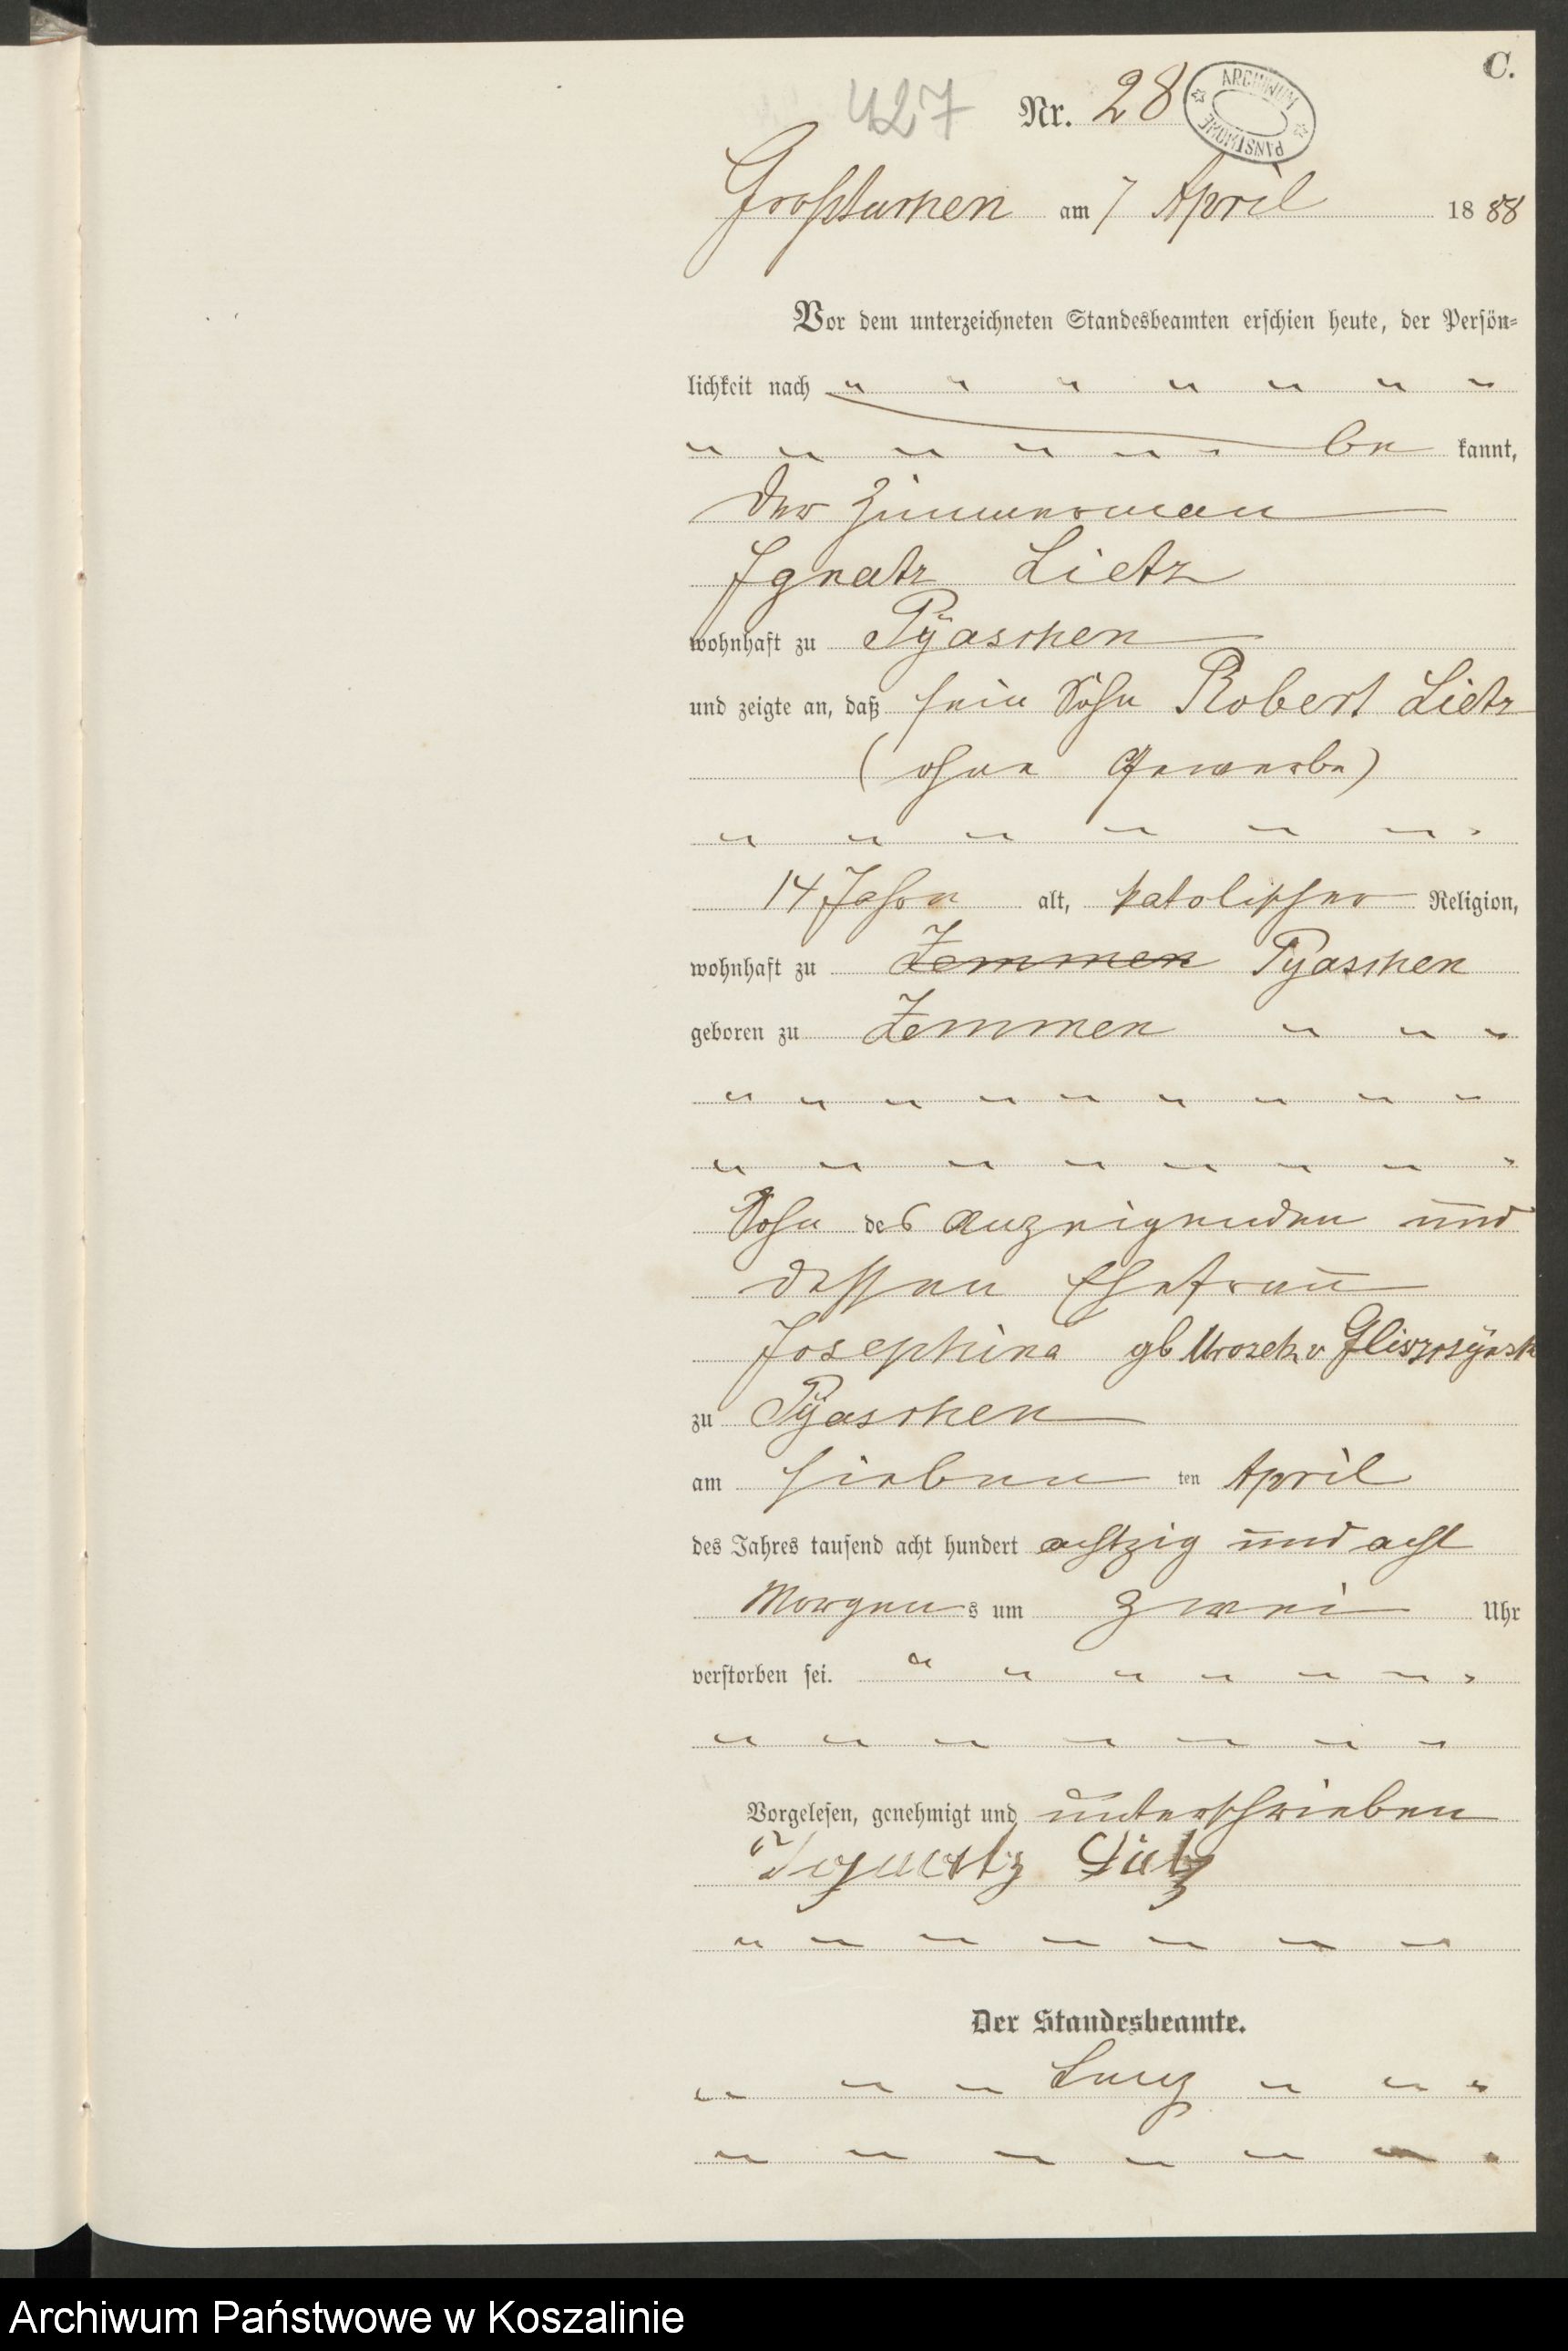 C.
427 Nr. 28
ARCHIWUM PAŃSTWOWE
Großtuchen am 7 April 1888
Vor dem unterzeichneten Standesbeamten erschien heute, der Persön-
lichkeit nach " " " " " " "
" " " " " " be kannt,
der Zimmerman
Ignatz Lietz
wohnhaft zu Pyaschen
und zeigte an, daß sein Sohn Robert Lietz
(ohne Gewerbe)
" " " " " " "
14 Jahre alt, katolischer Religion,
wohnhaft zu Zemmen Pyaschen
geboren zu Zemmen " " "
" " " " " " " " "
" " " " " " " "
Sohn des Anzeigenden und
dessen Ehefrau
Josephina gb Mrosek v
zu Pyaschen
am sieben ten April
des Jahres tausend acht hundert achtzig und acht
Morgens um zwei Uhr
verstorben sei. " " " " " " "
" " " " " " "
Vorgelesen, genehmigt und unterschrieben
Ignatz Litz
" " " " " " "
Der Standesbeamte.
" " " " " "
" " " " " " "
Archiwum Państwowe w Koszalinie